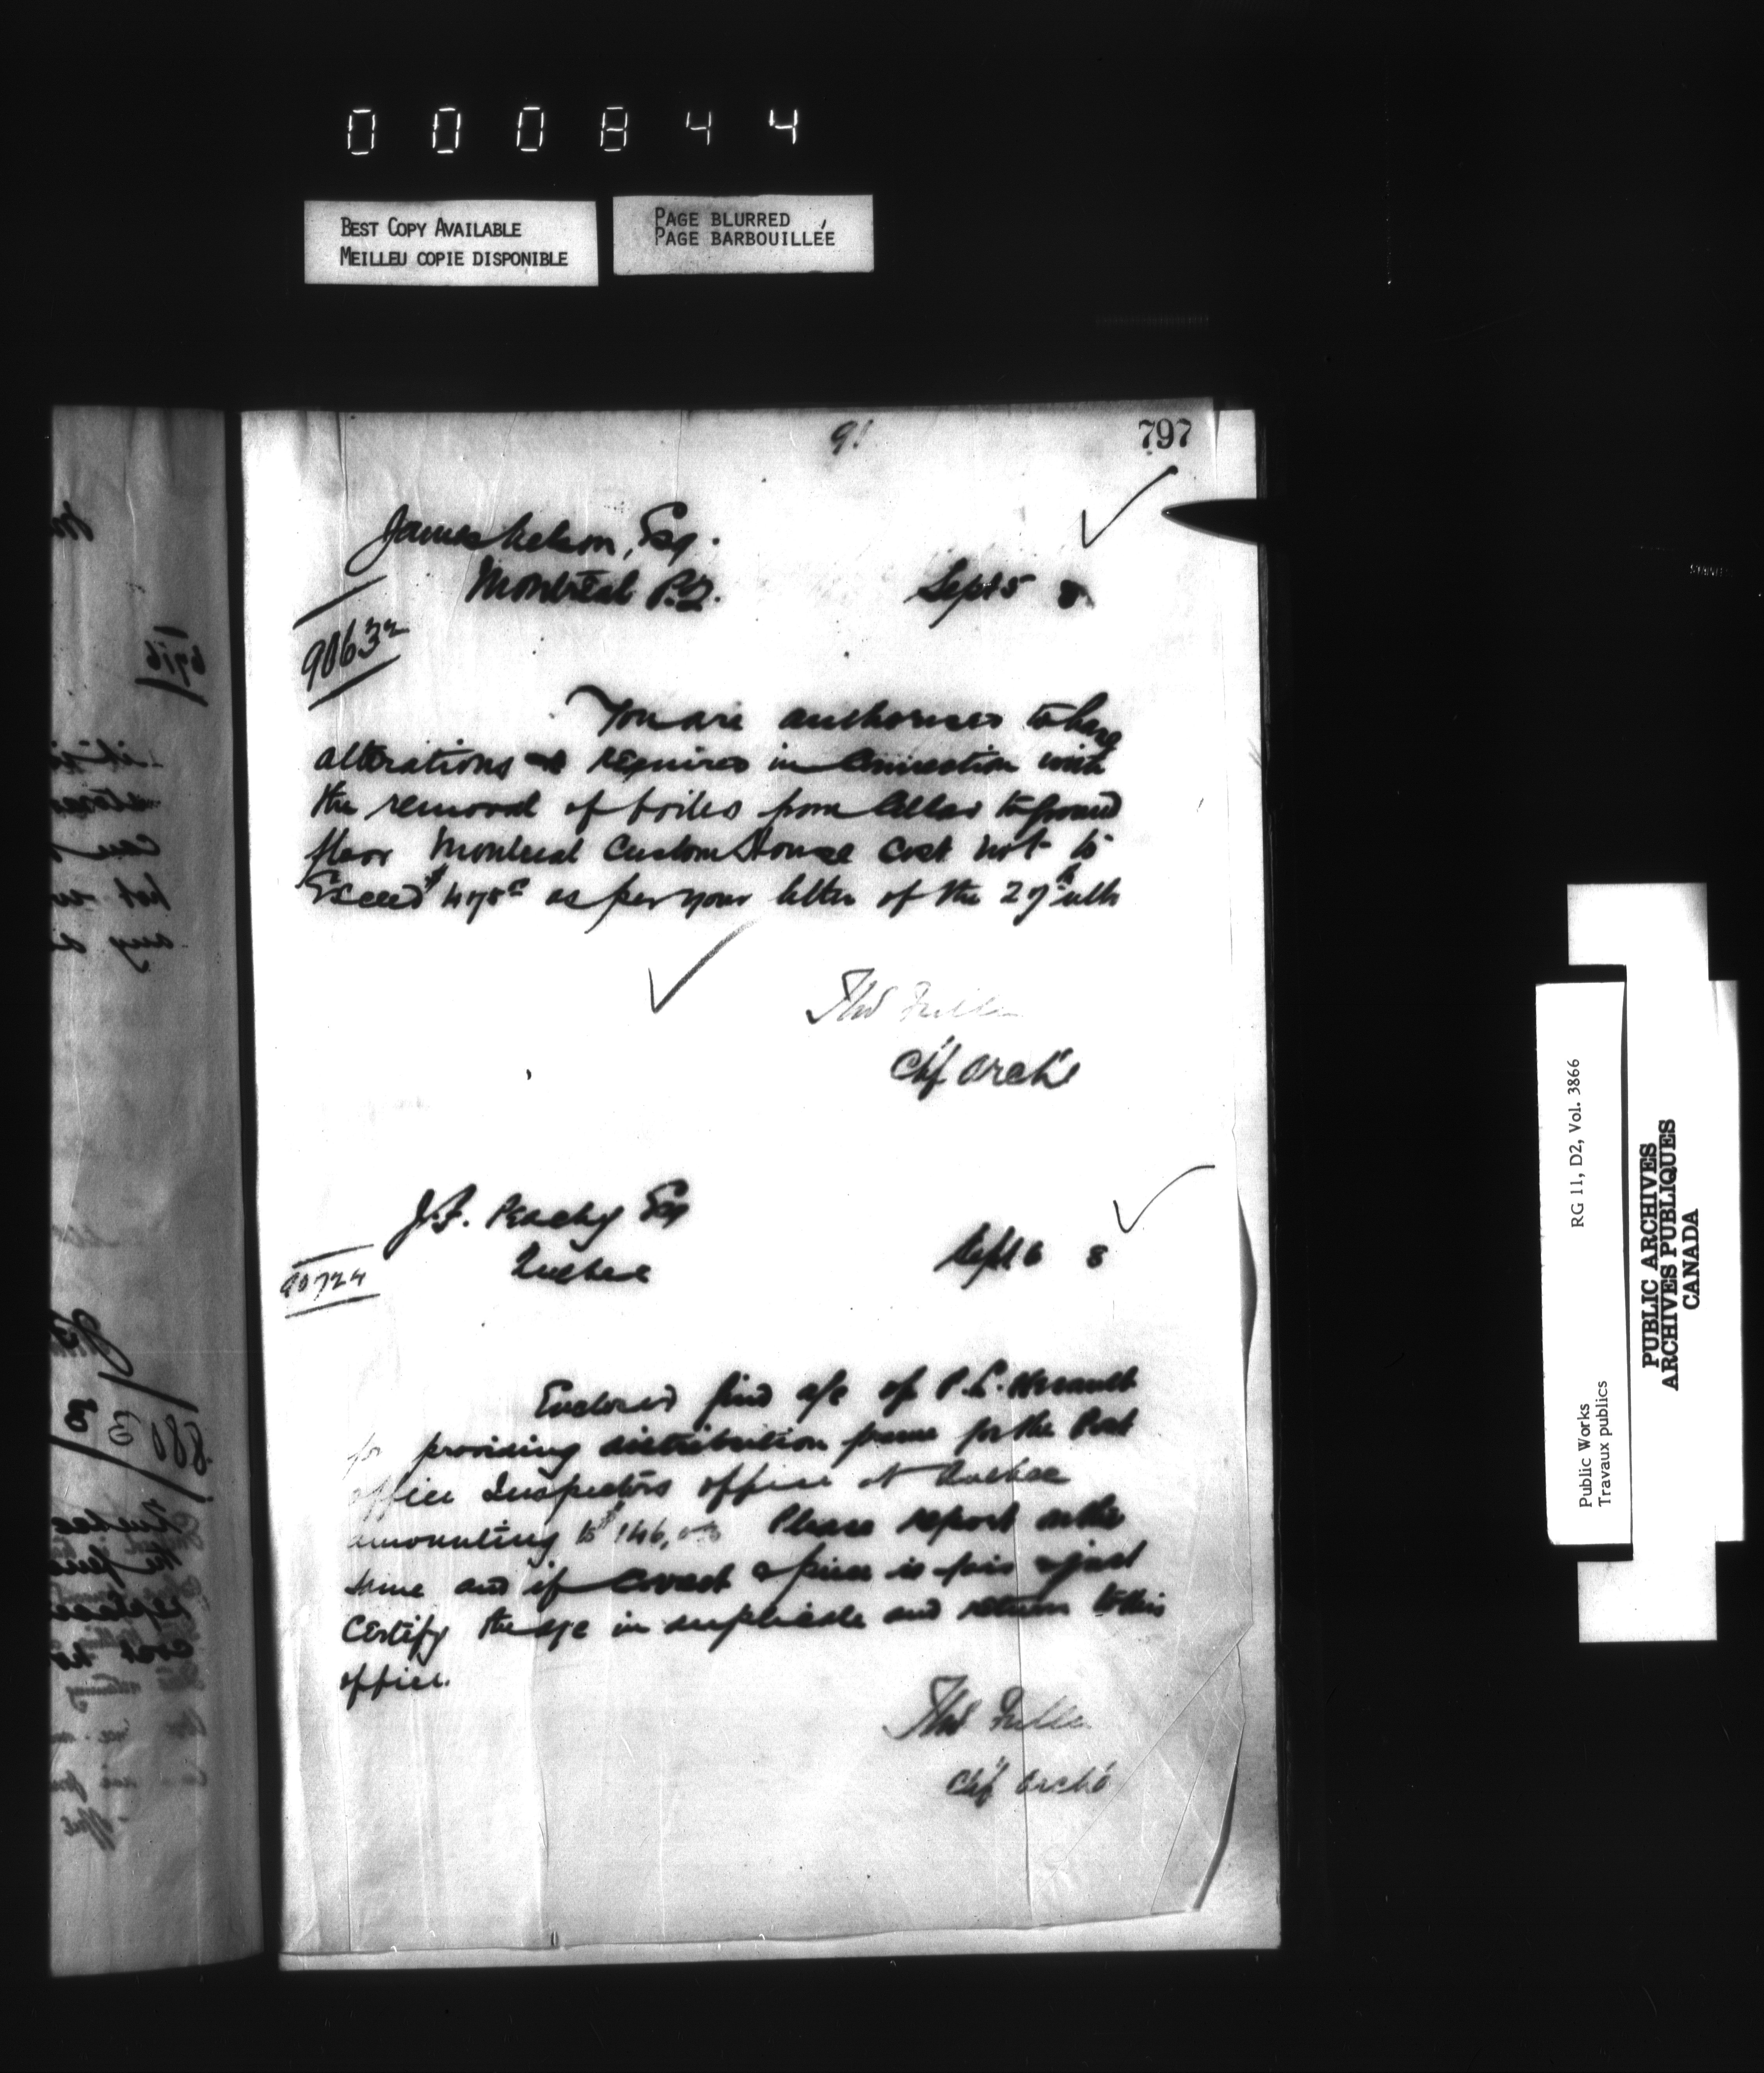 000844
BEST COPY AVAILABLE
MEILLEU COPIE DISPONIBLE
PAGE BLURRED
PAGE BARBOUILLÉE
797
James Nelson, Esq.
Montreal P.Q.
Sept 5 8
You are authorised to have
alterations required in connection with
the removal of boiler from Cellar to ground
floor Montreal Custom House cost not to
Exceed $ as per your letter of the 27th ulto
Thos Fuller
Chf Archt
J.F. Peachy Esq
Quebec
Sept 6 8
90724
Enclosed find a/c of P.L.
for providing distribution frame for the Post
office Inspectors office at Quebec
amounting to $146, Please report on the
same and if correct & price is fair & just
Certify the a/c in duplicate and return to this
office.
Thos Fuller
Chf Archt
RG 11, D2, Vol. 3866
Public Works
Travaux publics
PUBLIC ARCHIVES
ARCHIVES PUBLIQUES
CANADA